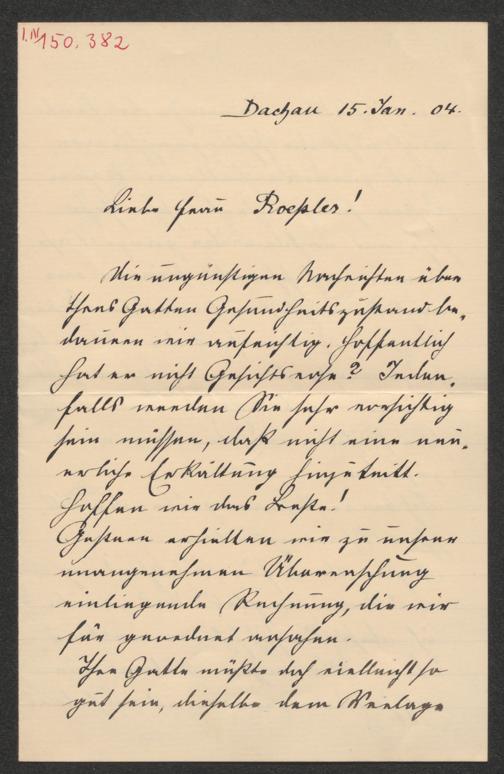 I.N. 150.382
Dachau 15. Jan. 04.
Liebe Frau Roeßler!
Die ungünstigen Nachrichten über
Ihres Gatten Gesundheitszustand be-
dauern wir aufrichtig. Hoffentlich
hat er nicht Gesichtsrose? Jeden-
falls werden Sie sehr vorsichtig
sein müssen, daß nicht eine neu-
erliche Erkältung hinzutritt.
Hoffen wir das Beste!
Gestern erhielten wir zu unserer
unangenehmen Überraschung
einliegende Rechnung, die wir
für geordnet ansahen.
Ihr Gatte müßte doch vielleicht so
gut sein, dieselbe dem Verlage